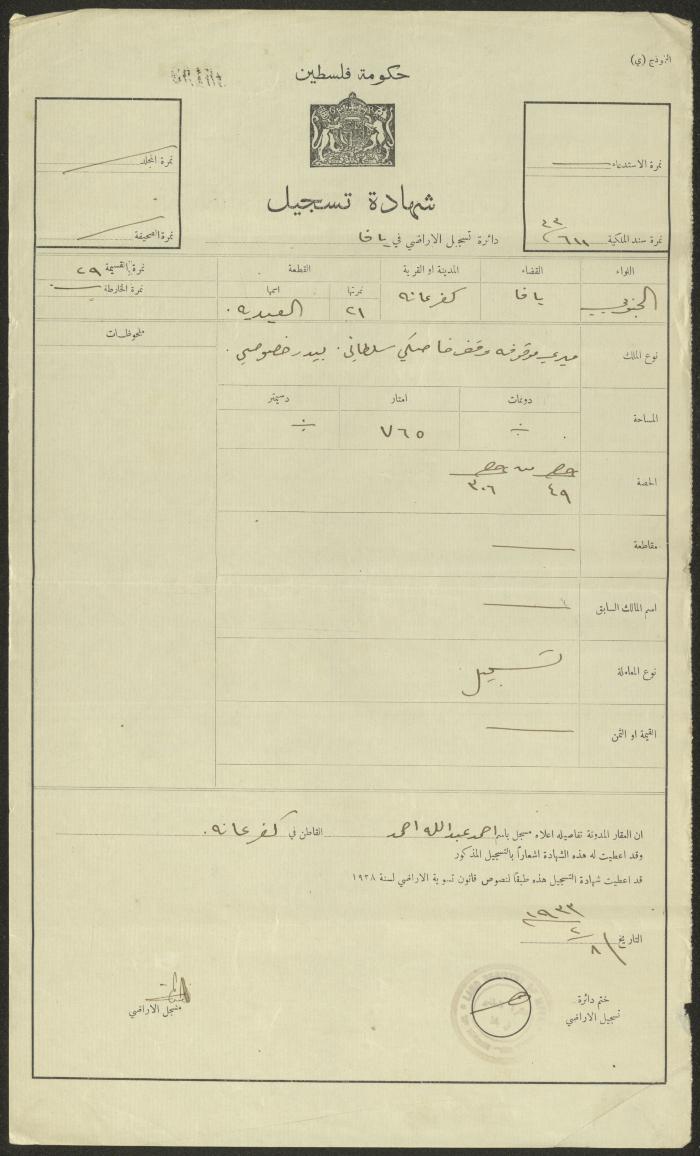 النموذج (ي)
حكومة فلسطين
نمرة الاستدعاء
نمرة المجلد
شهادة تسجيل
نمرة سند الملكية ٦١١ / ٣٣
دائرة تسجيل الاراضي في يافا
نمرة الصحيفة
اللواء
القضاء
المدينة او القرية
القطعة
نمرة القسيمة ٢٩
نمرتها
اسمها
نمرة الخارطة
الجنوبي
يافا
كفرعانه
٢١
العيديه.
ملحوظات
نوع الملك
ميري موقوفه وقف خاصكي سلطاني. بيدر خصوصي.
المساحة
دونمات
امتار
دسيمتر
٧٦٥
الحصة
حصه من حصه
٤٩ ٣٠٦
مقاطعة
اسم المالك السابق
نوع المعاملة
تسجيل
القيمة او الثمن
ان العقار المدونة تفاصيله اعلاه مسجل باسم احمد عبد الله احمد القاطن في كفرعانه.
وقد اعطيت له هذه الشهادة اشعاراً بالتسجيل المذكور
قد اعطيت شهادة التسجيل هذه طبقاً لنصوص قانون تسوية الاراضي لسنة ١٩٢٨
التاريخ ٨ / ٢ / ١٩٣٣
ختم دائرة
تسجيل الاراضي
مسجل الاراضي